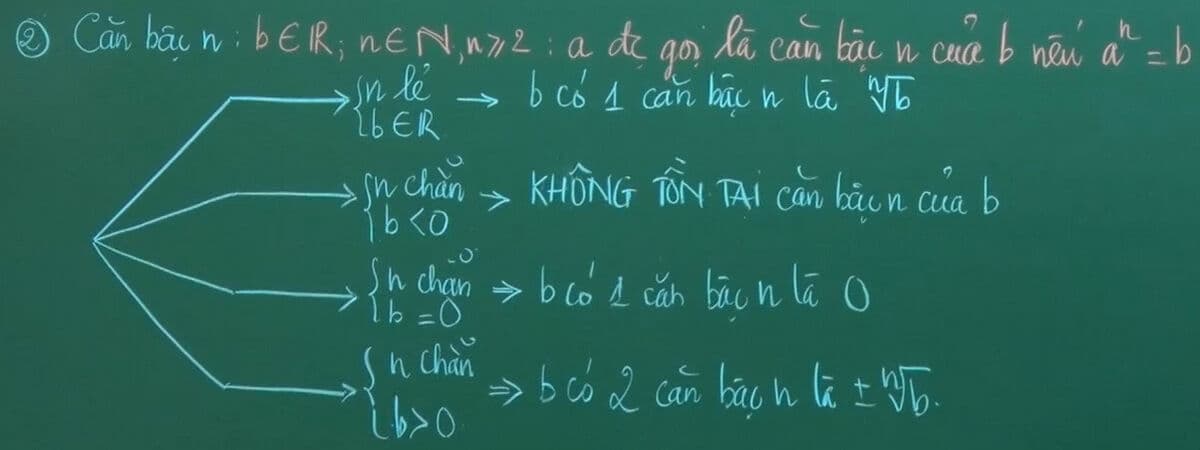 ② Căn bậc n : b ∈ ℝ; n ∈ ℕ, n ⩾ 2 : a đc gọi là căn bậc n của b nếu aⁿ = b
{ n lẻ → b có 1 căn bậc n là ⁿ√b
{ b ∈ ℝ
{ n chẵn → KHÔNG TỒN TẠI căn bậc n của b
{ b < 0
{ n chẵn ⇒ b có 1 căn bậc n là 0
{ b = 0
{ n chẵn ⇒ b có 2 căn bậc n là ± ⁿ√b.
{ b > 0